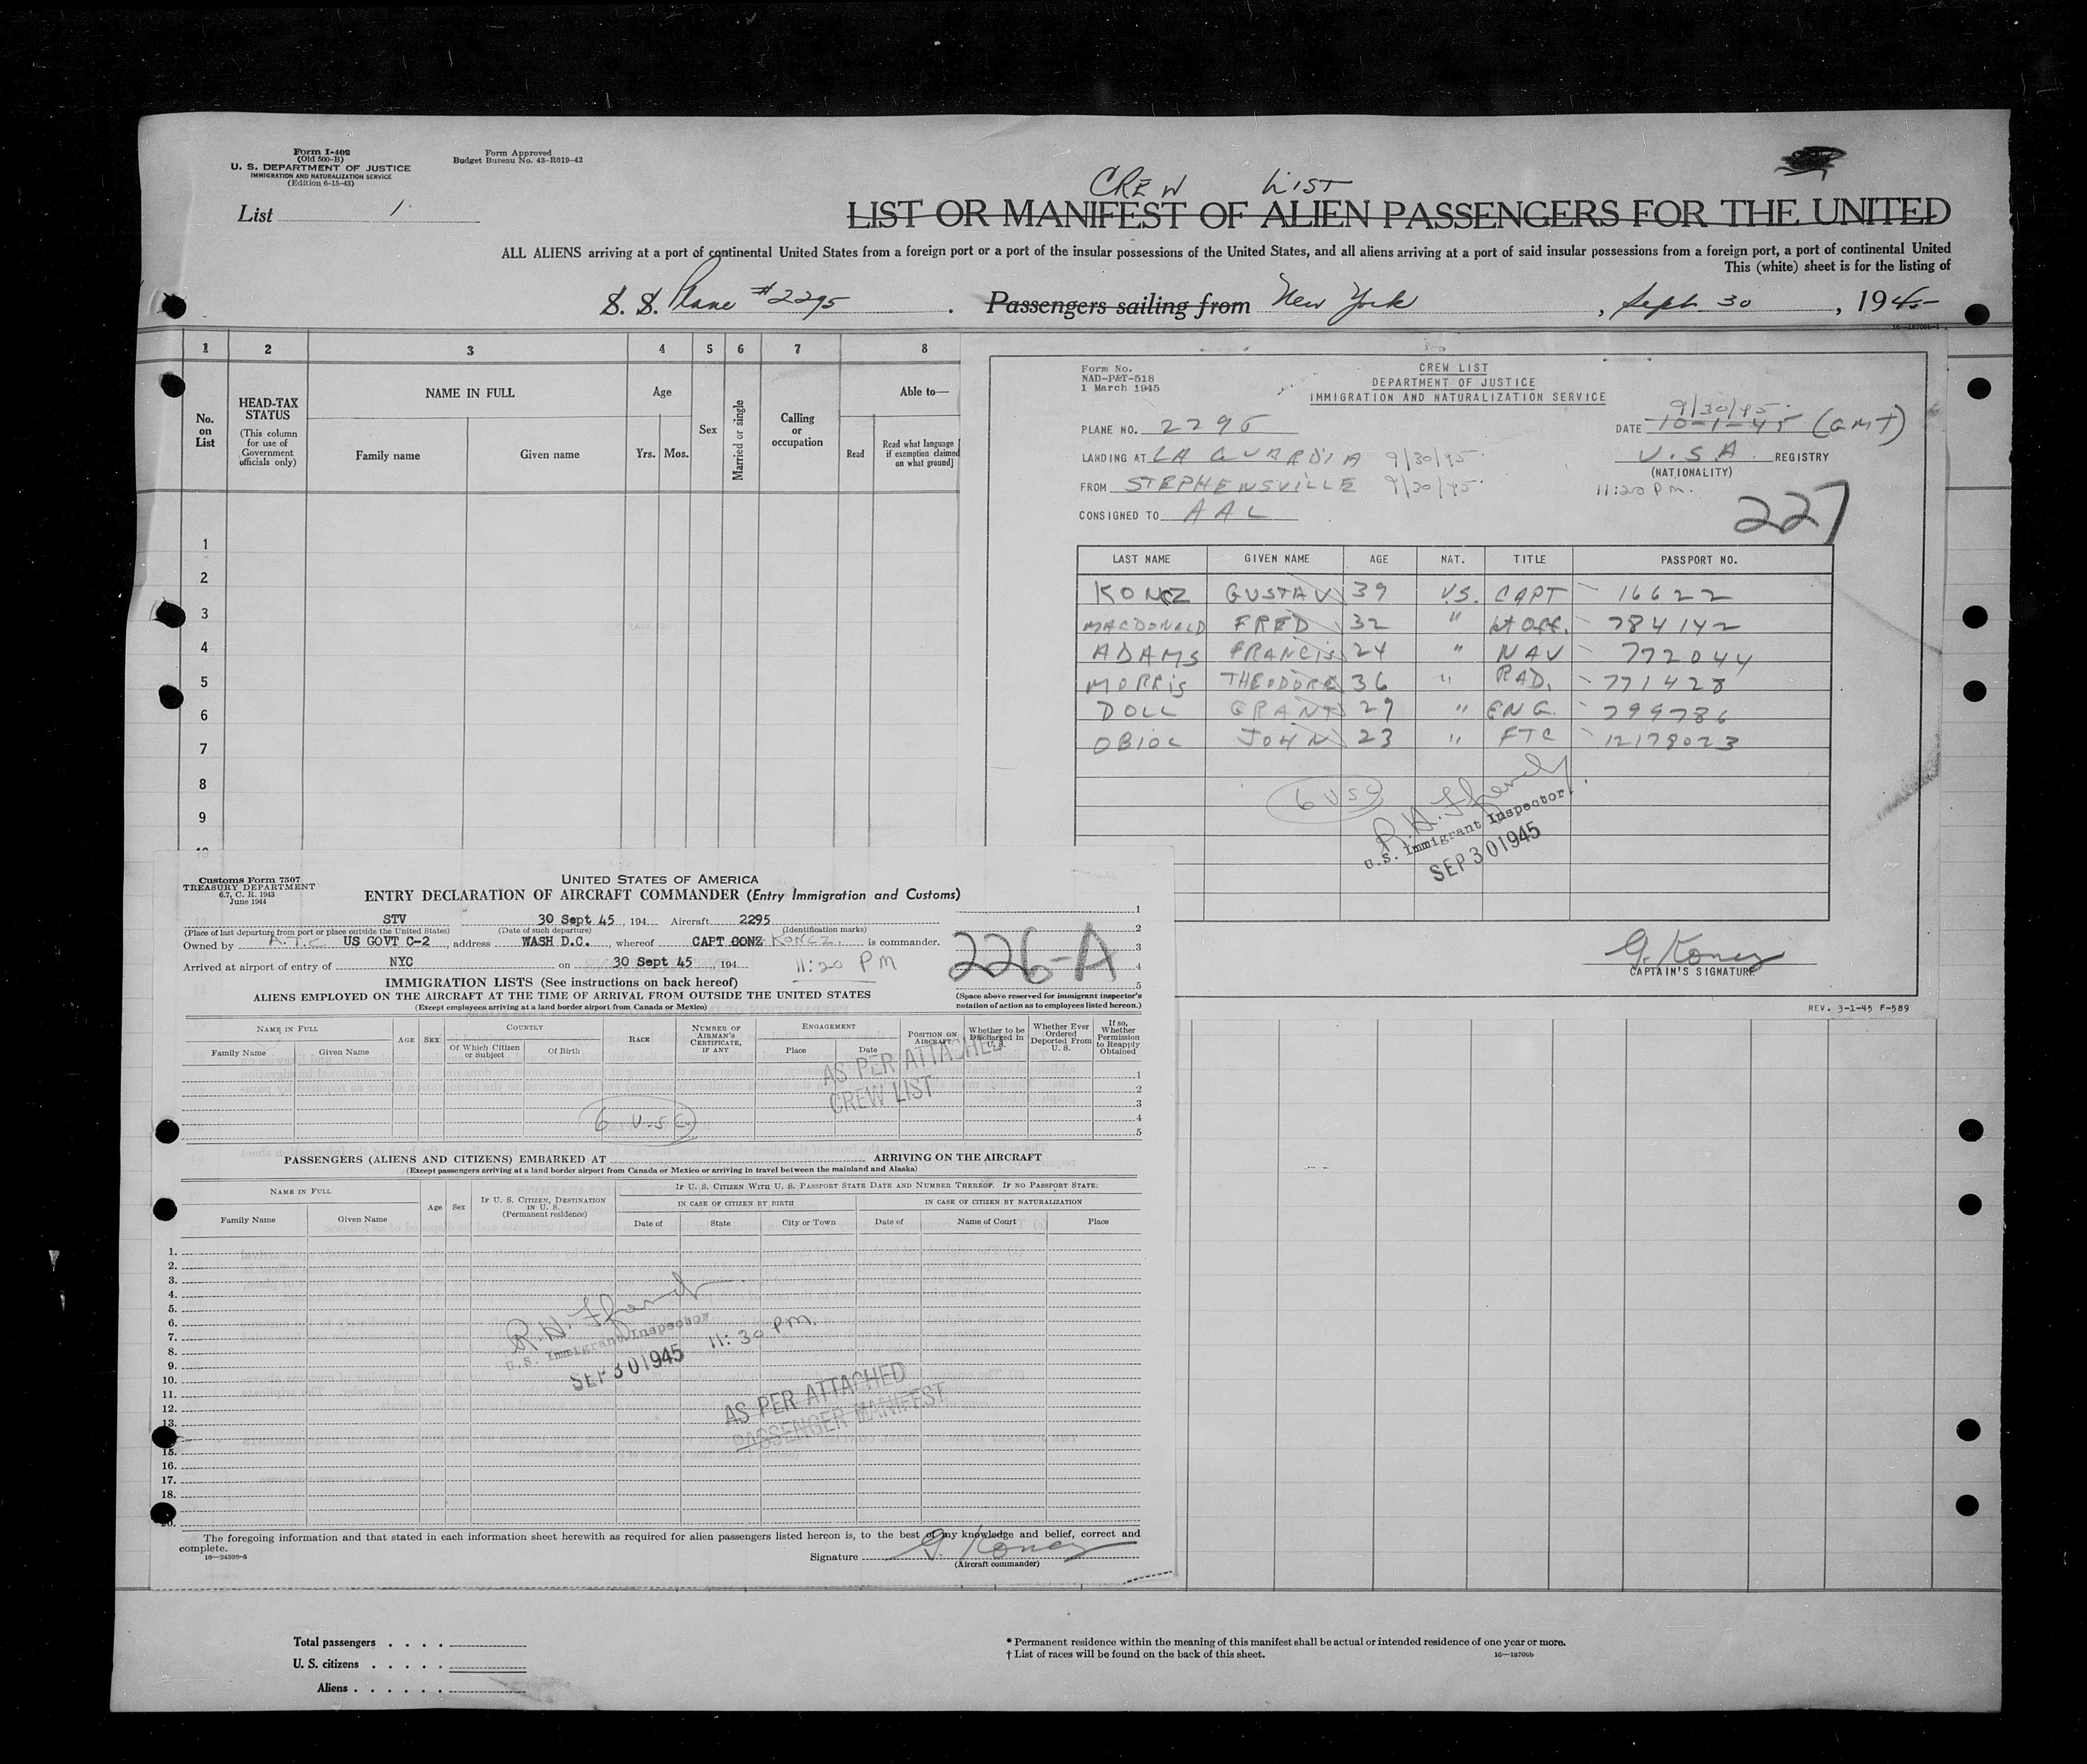 Form I-402
(Old 500-B)
U. S. DEPARTMENT OF JUSTICE
IMMIGRATION AND NATURALIZATION SERVICE
(Edition 6-15-43)
Form Approved
Budget Bureau No. 43-R019-42
List 1.
CREW LIST
LIST OR MANIFEST OF ALIEN PASSENGERS FOR THE UNITED
ALL ALIENS arriving at a port of continental United States from a foreign port or a port of the insular possessions of the United States, and all aliens arriving at a port of said insular possessions from a foreign port, a port of continental United
This (white) sheet is for the listing of
S. S. Plane #2295 . Passengers sailing from New York , Sept 30 , 1945
1 2 3 4 5 6 7 8
No. on List
HEAD-TAX STATUS
(This column for use of Government officials only)
NAME IN FULL
Family name Given name
Age
Yrs. Mos.
Sex
Married or single
Calling or occupation
Able to—
Read
Read what language [if exemption claimed on what ground]
1
2
3
4
5
6
7
8
9
Form No.
NAD-P&T-518
1 March 1945
CREW LIST
DEPARTMENT OF JUSTICE
IMMIGRATION AND NATURALIZATION SERVICE
9/30/45
PLANE NO. 2295 DATE 10-1-45 (GMT)
LANDING AT LA GUARDIA 9/30/45 U.S.A. REGISTRY
(NATIONALITY)
FROM STEPHENSVILLE 9/30/45 11:20 P.M.
CONSIGNED TO AAL
227
LAST NAME GIVEN NAME AGE NAT. TITLE PASSPORT NO.
KONCZ GUSTAV 39 U.S. CAPT 16622
MACDONALD FRED 32 " 1st Off. 784142
ADAMS FRANCIS 24 " NAV 772044
MORRIS THEODORE 36 " RAD. 771428
DOLL GRANT 29 " ENG. 799786
OBIOL JOHN 23 " FTC 12179023
6 USC
U.S. Immigrant Inspector
SEP 30 1945
G. Koncz
CAPTAIN'S SIGNATURE
REV. 3-1-45 F-589
Customs Form 7507
TREASURY DEPARTMENT
6.7, C. R. 1943
June 1944
UNITED STATES OF AMERICA
ENTRY DECLARATION OF AIRCRAFT COMMANDER (Entry Immigration and Customs)
STV 30 Sept 45, 194 Aircraft 2295
(Place of last departure from port or place outside the United States) (Date of such departure) (Identification marks)
Owned by A.T.C US GOVT C-2, address WASH D.C., whereof CAPT GONZ KONCZ. is commander.
Arrived at airport of entry of NYC on 30 Sept 45, 194 11:20 PM
226-A
1
2
3
4
5
IMMIGRATION LISTS (See instructions on back hereof)
ALIENS EMPLOYED ON THE AIRCRAFT AT THE TIME OF ARRIVAL FROM OUTSIDE THE UNITED STATES
(Except employees arriving at a land border airport from Canada or Mexico)
(Space above reserved for immigrant inspector's notation of action as to employees listed hereon.)
NAME IN FULL
Family Name Given Name
AGE SEX
COUNTLY
Of Which Citizen or Subject Of Birth
RACE
NUMBER OF AIRMAN'S CERTIFICATE, IF ANY
ENGAGEMENT
Place Date
POSITION ON AIRCRAFT
Whether to be Discharged in U. S.
Whether Ever Ordered Deported From U. S.
If so, Whether Permission to Reapply Obtained
AS PER ATTACHED
CREW LIST
6 U.S.C.
1
2
3
4
5
PASSENGERS (ALIENS AND CITIZENS) EMBARKED AT ARRIVING ON THE AIRCRAFT
(Except passengers arriving at a land border airport from Canada or Mexico or arriving in travel between the mainland and Alaska)
NAME IN FULL
Family Name Given Name
Age Sex
IF U. S. CITIZEN, DESTINATION IN U. S.
(Permanent residence)
IF U. S. CITIZEN WITH U. S. PASSPORT STATE DATE AND NUMBER THEREOF. IF NO PASSPORT STATE:
IN CASE OF CITIZEN BY BIRTH IN CASE OF CITIZEN BY NATURALIZATION
Date of State City or Town Date of Name of Court Place
1.
2.
3.
4.
5.
6.
7.
8.
9.
10.
11.
12.
13.
15.
16.
17.
18.
20.
U.S. Immigrant Inspector
SEP 30 1945 11:30 P.M.
AS PER ATTACHED
PASSENGER MANIFEST
The foregoing information and that stated in each information sheet herewith as required for alien passengers listed hereon is, to the best of my knowledge and belief, correct and
complete.
16—24598-5
Signature G. Koncz
(Aircraft commander)
Total passengers . . . .
U. S. citizens . . . . .
Aliens . . . . . .
* Permanent residence within the meaning of this manifest shall be actual or intended residence of one year or more.
† List of races will be found on the back of this sheet.
16—18700b